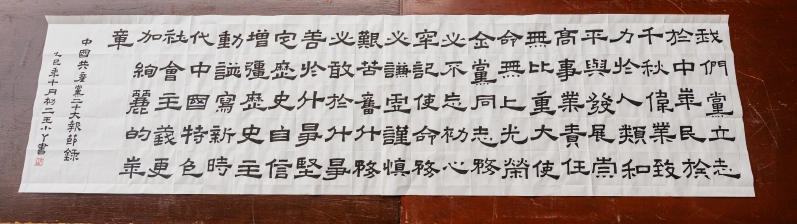 我們黨立志
於中華民族
千秋偉業致
力於人類和
平與發展崇
高事業責任
無比重大使
命無上光榮
全黨同志務
必不忘初心
牢記使命務
必謙虛謹慎
艱苦奮鬥務
必敢於鬥爭
善於鬥爭堅
定歷史自信
增彊歷史主
動譜寫新時
代中國特色
社會主義更
加絢麗的華
章
中國共產黨二十大報節錄
乙巳年十月初二王小丫書